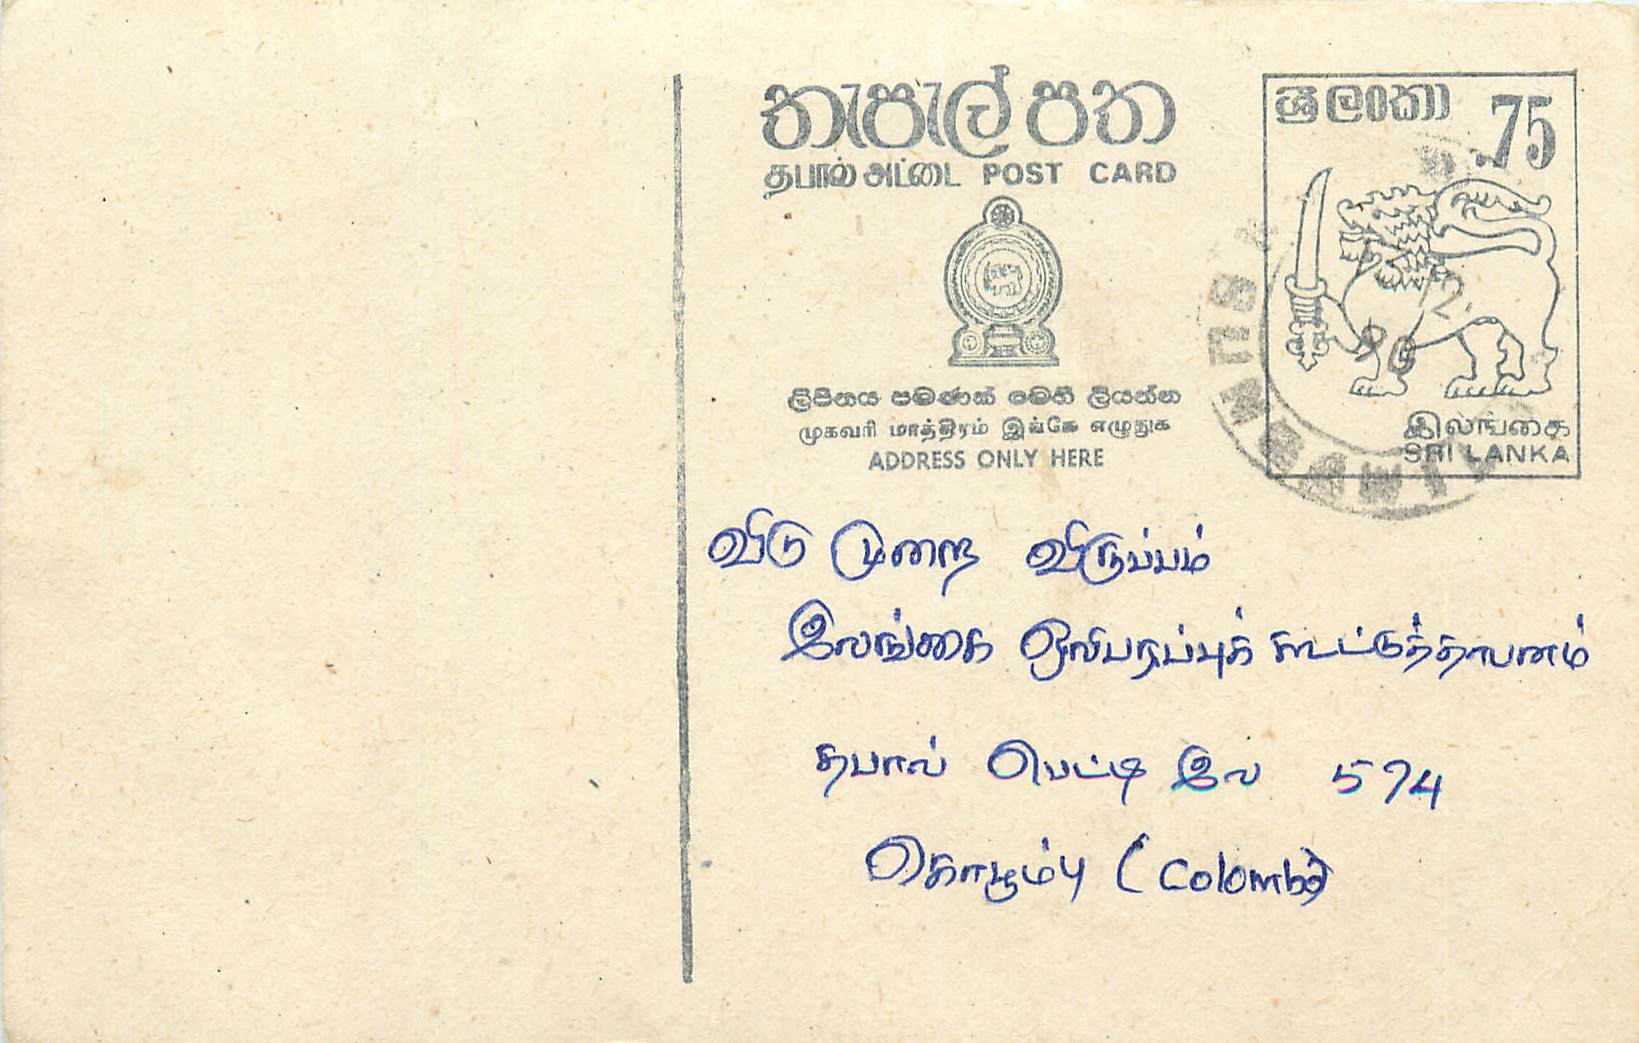 තැපැල් පත
தபால் அட்டை POST CARD
ලිපිනය පමණක් මෙහි ලියන්න
முகவரி மாத்திரம் இங்கே எழுதுக
ADDRESS ONLY HERE
ශ්‍රී ලංකා .75
இலங்கை
SRI LANKA
விடு முறை விருப்பம்
இலங்கை ஒலிபரப்புக் கூட்டுத்தாபனம்
தபால் பெட்டி இல 574
கொழும்பு (Colombo)